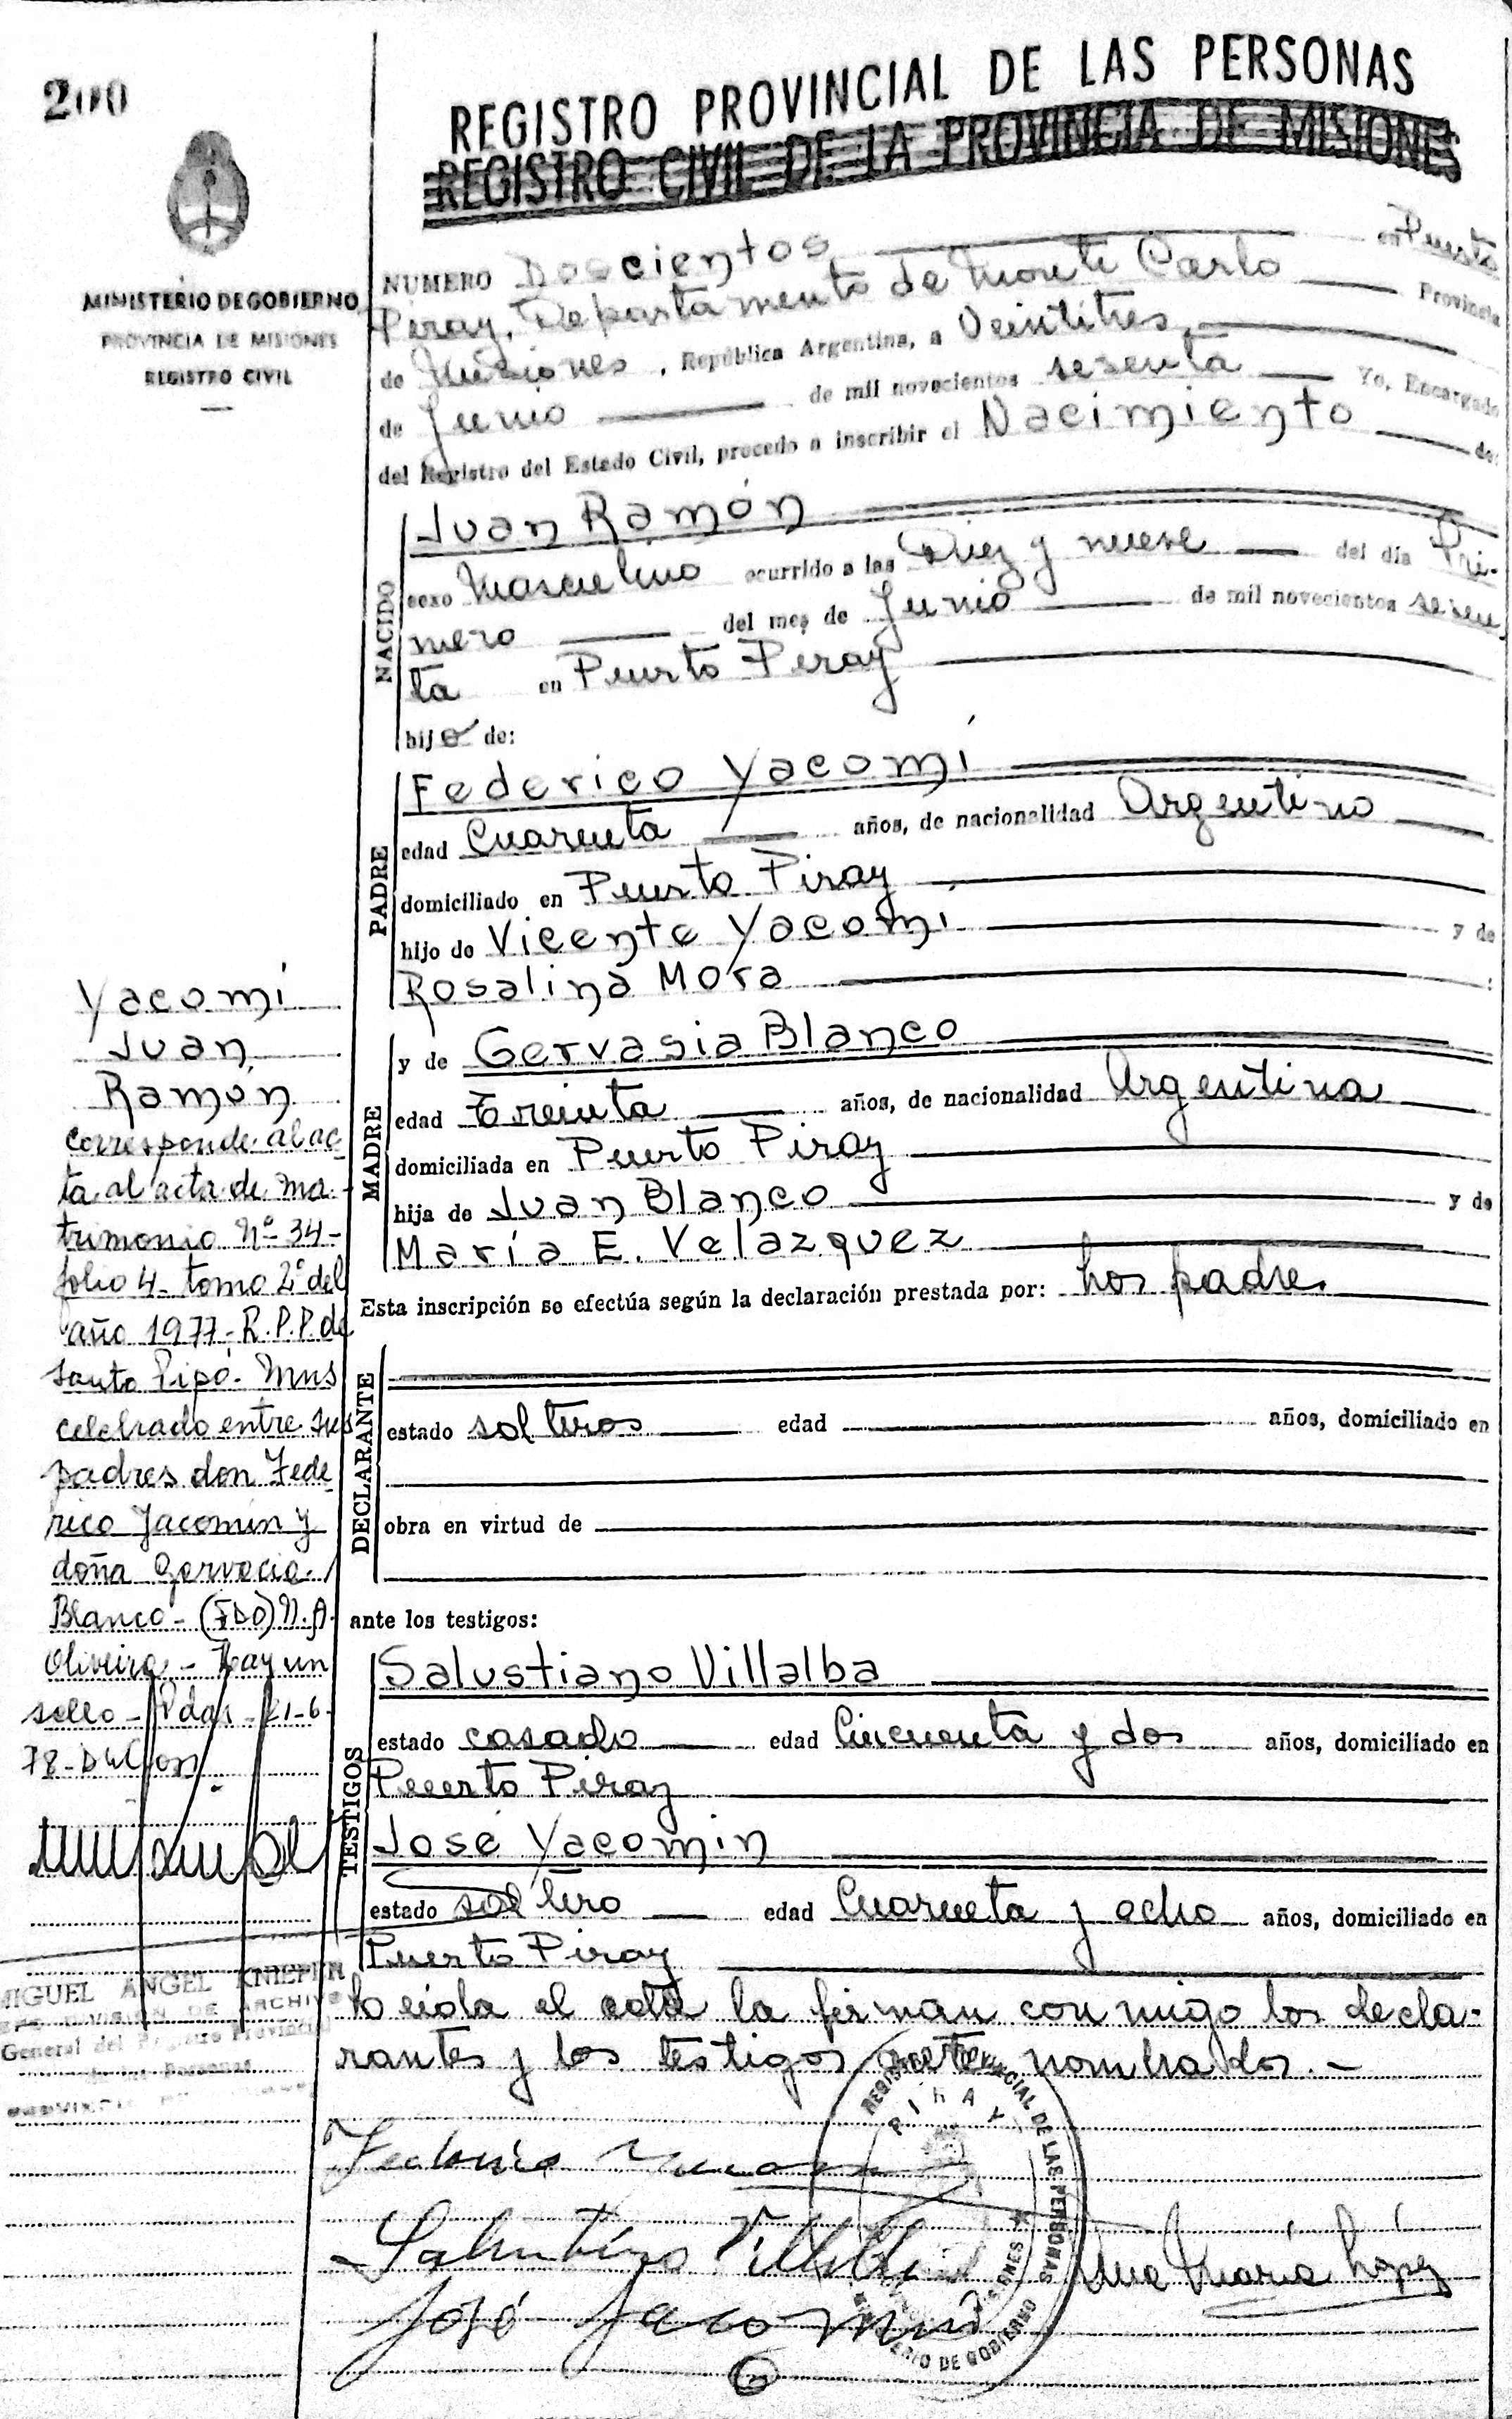 200
REGISTRO PROVINCIAL DE LAS PERSONAS
REGISTRO CIVIL DE LA PROVINCIA DE MISIONES
MINISTERIO DE GOBIERNO
PROVINCIA DE MISIONES
REGISTRO CIVIL
NUMERO Doscientos en Puerto
Piray, Departamento de Monte Carlo Provincia
de Misiones, República Argentina, a Veintitres
de Junio de mil novecientos sesenta Yo, Encargado
del Registro del Estado Civil, procedo a inscribir el Nacimiento de:
NACIDO
Juan Ramón
sexo Masculino ocurrido a las Diez y nueve del día Pri-
mero del mes de Junio de mil novecientos sesen-
ta en Puerto Piray
hijo de:
PADRE
Federico Yacomí
edad Cuarenta años, de nacionalidad Argentino
domiciliado en Puerto Piray
hijo de Vicente Yacomí y de
Rosalina Mora :
MADRE
y de Gervasia Blanco
edad Treinta años, de nacionalidad Argentina
domiciliada en Puerto Piray
hija de Juan Blanco y de
María E. Velazquez
Esta inscripción se efectúa según la declaración prestada por: los padres
DECLARANTE
estado solteros edad años, domiciliado en
obra en virtud de
ante los testigos:
TESTIGOS
Salustiano Villalba
estado casado edad Cincuenta y dos años, domiciliado en
Puerto Piray
José Yacomin
estado soltero edad Cuarenta y ocho años, domiciliado en
Puerto Piray
Leida el acta la firman conmigo los decla-
rantes y los testigos ante nombrados.-
Yacomí
Juan
Ramón
corresponde al ac
ta al acta de ma-
trimonio Nº 34-
folio 4- tomo 2º del
año 1977- R.P.P. de
Santo Pipó- Mnes
celebrado entre sus
padres don Fede
rico Jacomin y
doña Gervacia
Blanco- (FDO) N.A.
Oliveira - Hay un
sello - Pdas - 21-6-
78-
MIGUEL ANGEL KNIEPER
JEFE DIVISION DE ARCHIVO
General del Registro Provincial
de las Personas
REGISTRO PROVINCIAL DE LAS PERSONAS
PIRAY
MISIONES
MINISTERIO DE GOBIERNO
Federico
Villalba
José Jacomin
Ana María López